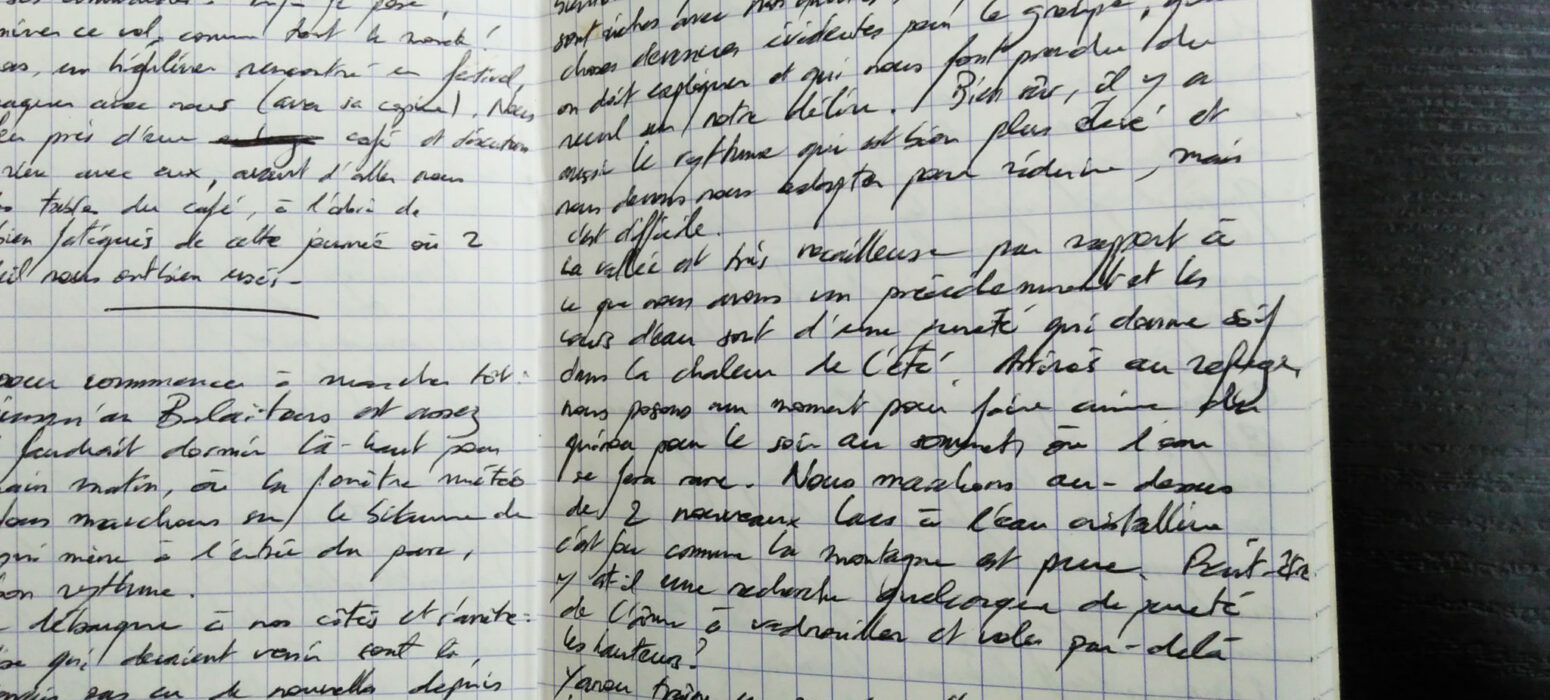 suivre ce vol, comme tout le monde !
as, un highliner rencontré en festival
avec nous (avec sa copine). Nous
près d'eux café et discutons
avec eux, avant d'aller nous
tables du café, à l'abri de
bien fatigués de cette journée où 2
nous ont bien usés.
pour commencer à marcher tôt.
jusqu'au Balaïtous est assez
faudrait dormir là-haut pour
matin, où la fenêtre météo
marchons sur le bitume de
qui mène à l'entrée du parc,
bon rythme.
débarque à nos côtés et s'arrête :
qui devaient venir sont là
pas eu de nouvelles depuis
sont riches avec
choses devenues évidentes pour le groupe,
on doit expliquer et qui nous font prendre du
recul sur notre délire. Bien sûr, il y a
aussi le rythme qui est bien plus élevé et
nous devons nous adapter pour réduire, mais
c'est difficile.
La vallée est très rocailleuse par rapport à
ce que nous avons vu précédemment et les
cours d'eau sont d'une pureté qui donne soif
dans la chaleur de l'été. Arrivés au refuge,
nous posons un moment pour faire cuire du
quinoa pour le soir au sommet, où l'eau
se fera rare. Nous marchons au-dessus
de 2 nouveaux lacs à l'eau cristalline
c'est fou comme la montagne est pure. Peut-être
y a-t-il une recherche quelconque de pureté
de l'âme à vadrouiller et voler par-delà
les hauteurs?